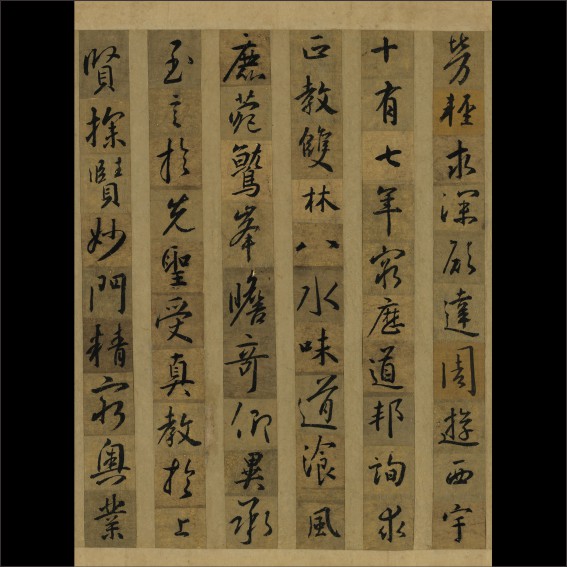 勞輕求深願達周遊西宇
十有七年窮歷道邦詢求
正教雙林八水味道飡風
鹿菀鷲峯瞻奇仰異承
至言於先聖受真教於上
賢探賾妙門精窮奧業